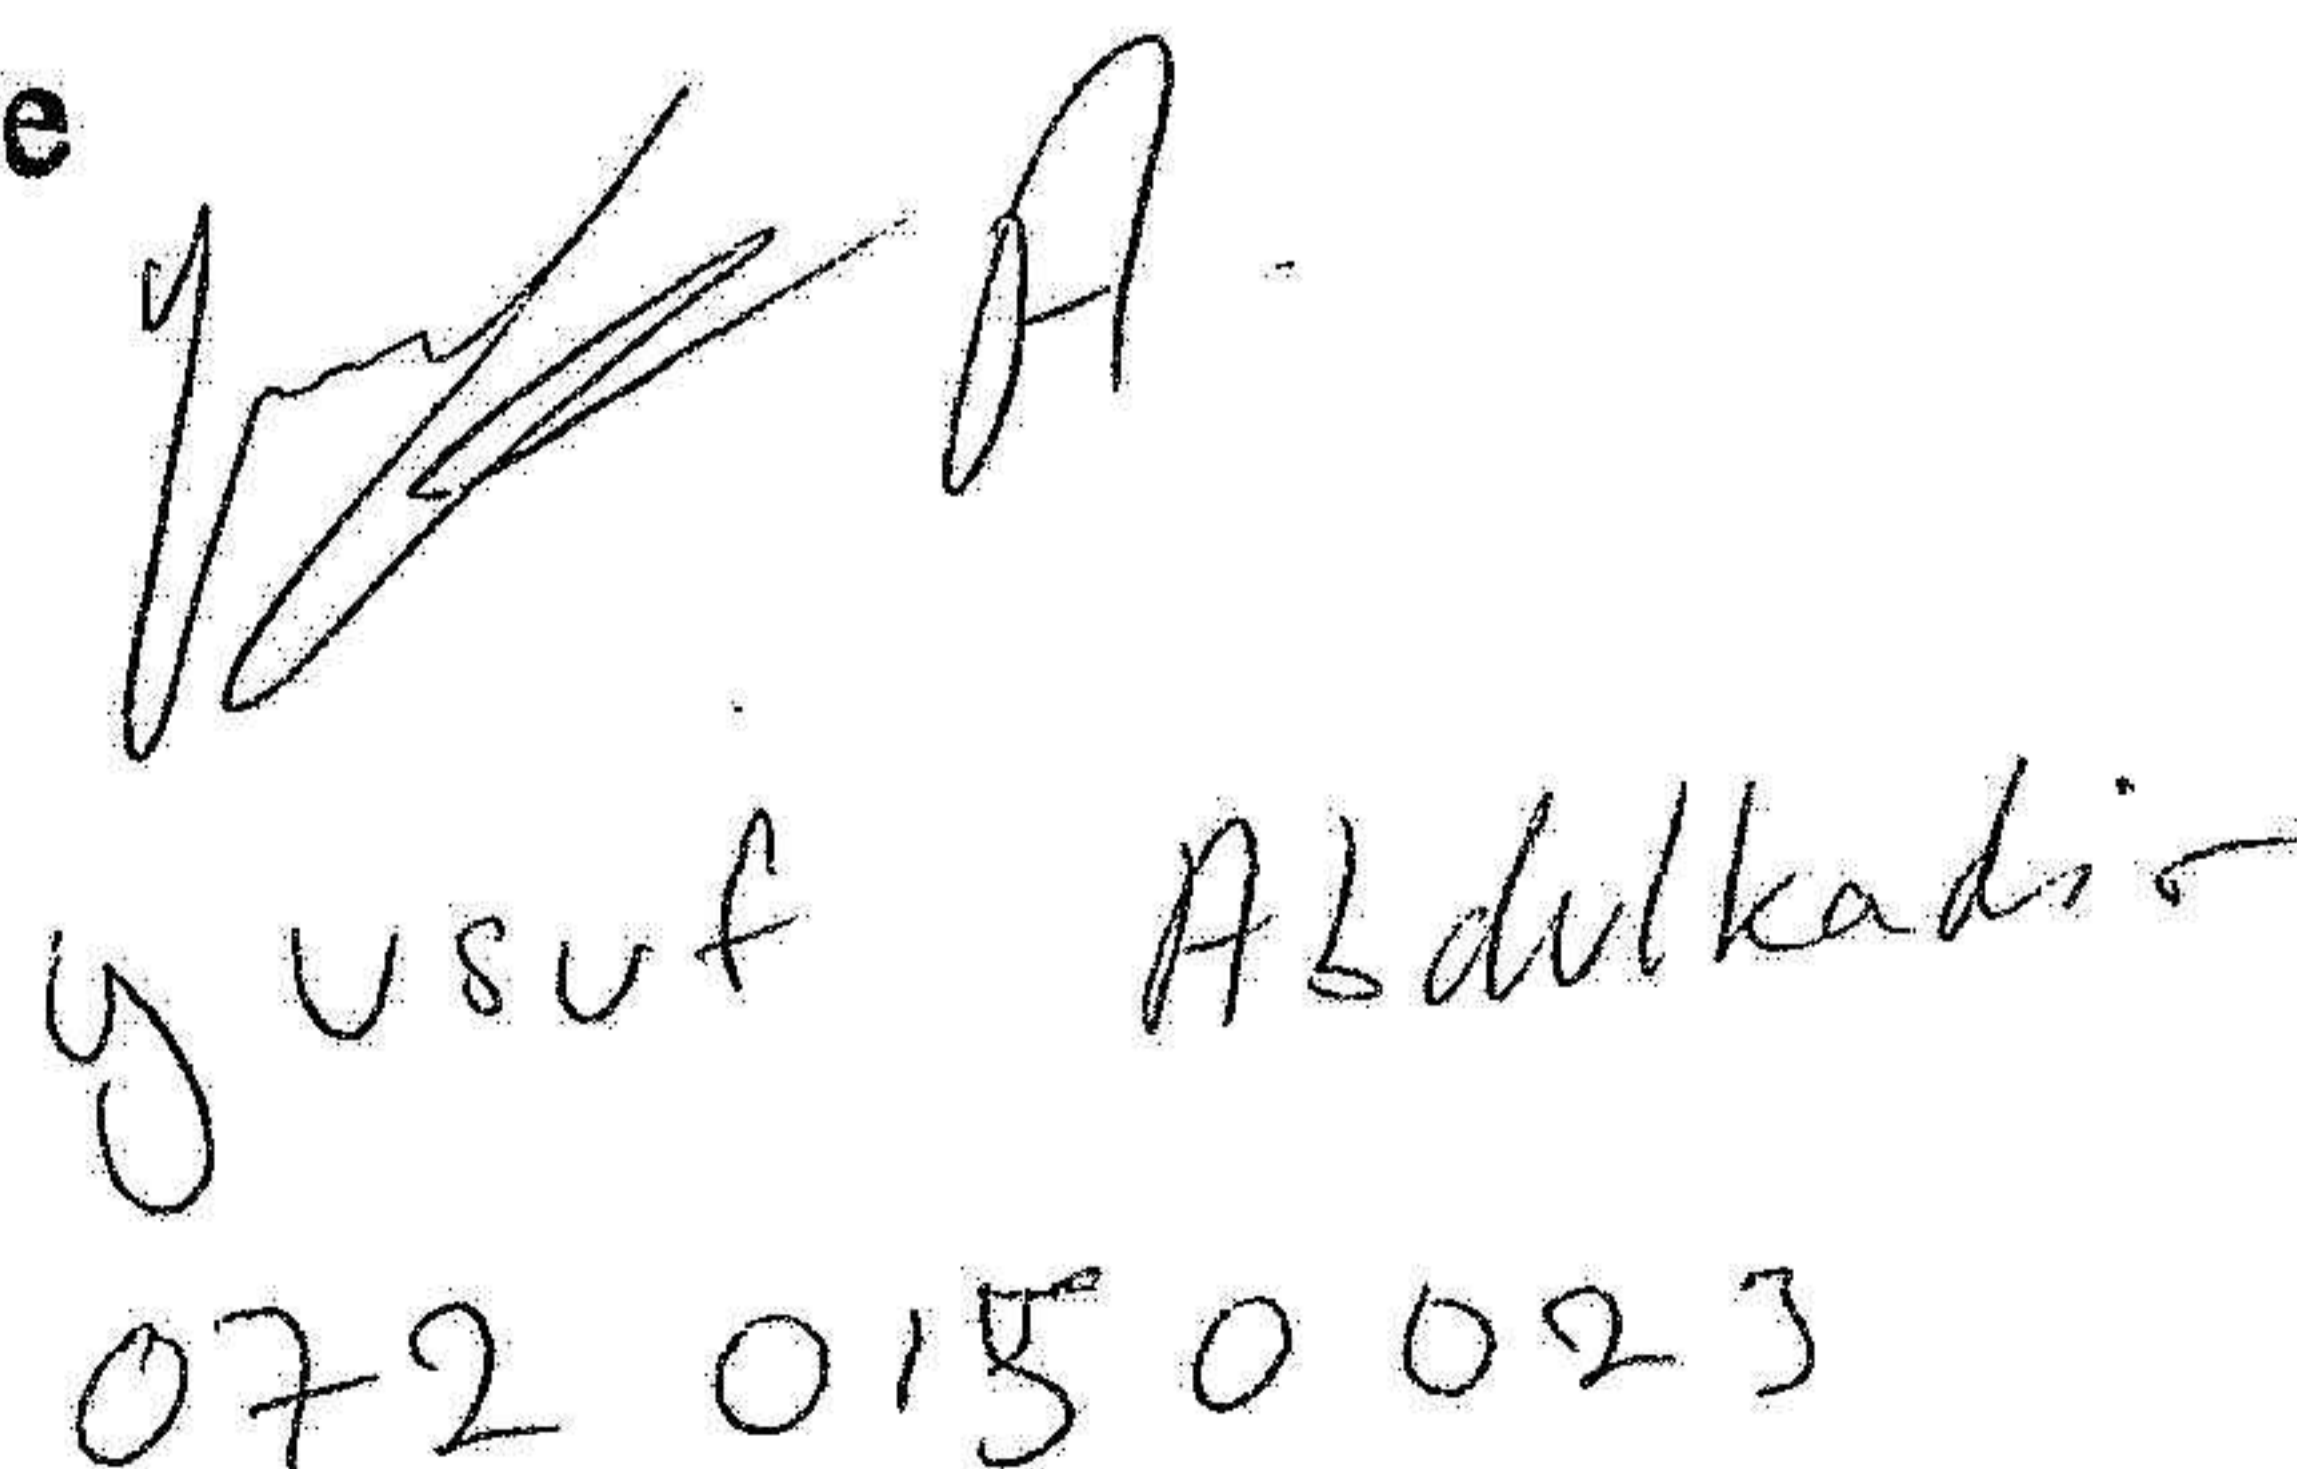 e
A
yusuf Abdulkadir
072 0150023